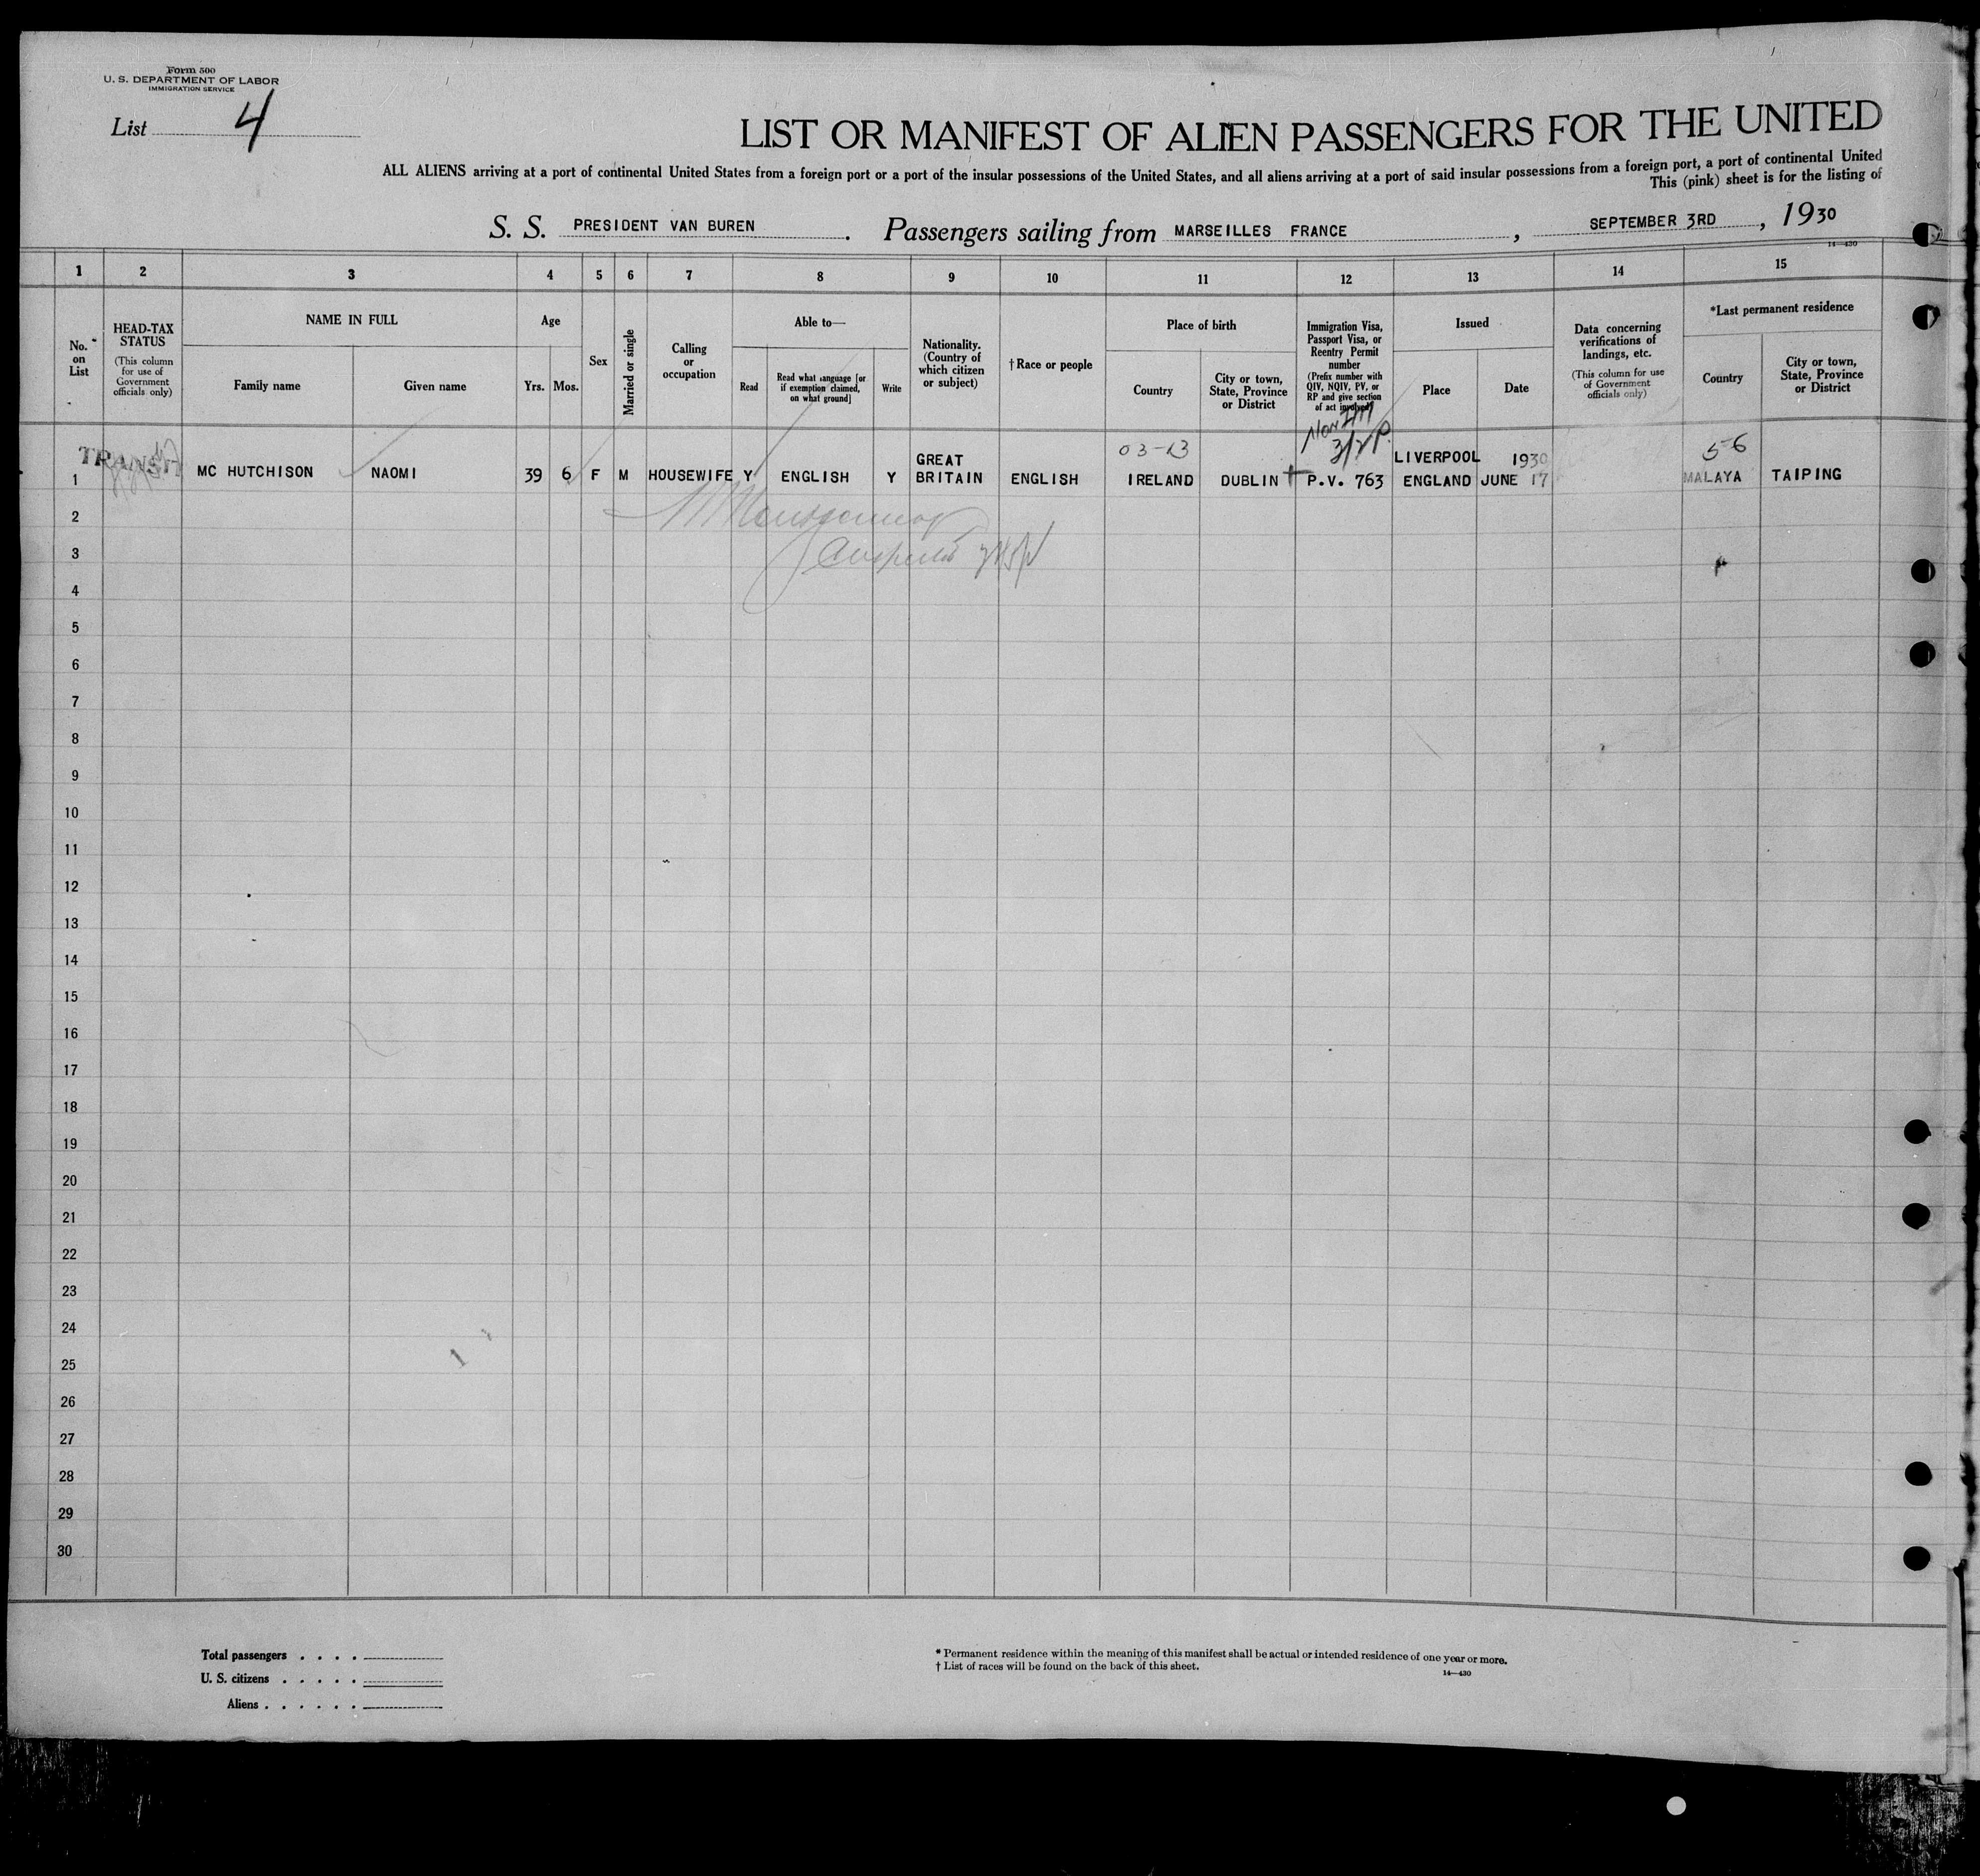 Form 500
U. S. DEPARTMENT OF LABOR
IMMIGRATION SERVICE
List 4
LIST OR MANIFEST OF ALIEN PASSENGERS FOR THE UNITED
ALL ALIENS arriving at a port of continental United States from a foreign port or a port of the insular possessions of the United States, and all aliens arriving at a port of said insular possessions from a foreign port, a port of continental United
This (pink) sheet is for the listing of
S. S. PRESIDENT VAN BUREN . Passengers sailing from MARSEILLES FRANCE , SEPTEMBER 3RD , 1930
14—430
1 2 3 4 5 6 7 8 9 10 11 12 13 14 15
No. on List
HEAD-TAX STATUS
(This column for use of Government officials only)
NAME IN FULL
Family name Given name
Age
Yrs. Mos.
Sex
Married or single
Calling or occupation
Able to—
Read
Read what language [or if exemption claimed, on what ground]
Write
Nationality. (Country of which citizen or subject)
†Race or people
Place of birth
Country
City or town, State, Province or District
Immigration Visa, Passport Visa, or Reentry Permit number
(Prefix number with QIV, NQIV, PV, or RP and give section of act involved)
Issued
Place Date
Data concerning verifications of landings, etc.
(This column for use of Government officials only)
*Last permanent residence
Country
City or town, State, Province or District
03-13
3/2
56
TRANSIT
1 MC HUTCHISON NAOMI 39 6 F M HOUSEWIFE Y ENGLISH Y GREAT BRITAIN ENGLISH IRELAND DUBLIN P.V. 763 LIVERPOOL ENGLAND 1930 JUNE 17 MALAYA TAIPING
2
3
4
5
6
7
8
9
10
11
12
13
14
15
16
17
18
19
20
21
22
23
24
25
26
27
28
29
30
Total passengers . . . .
U. S. citizens . . . . .
Aliens . . . . . .
* Permanent residence within the meaning of this manifest shall be actual or intended residence of one year or more.
† List of races will be found on the back of this sheet.
14—430